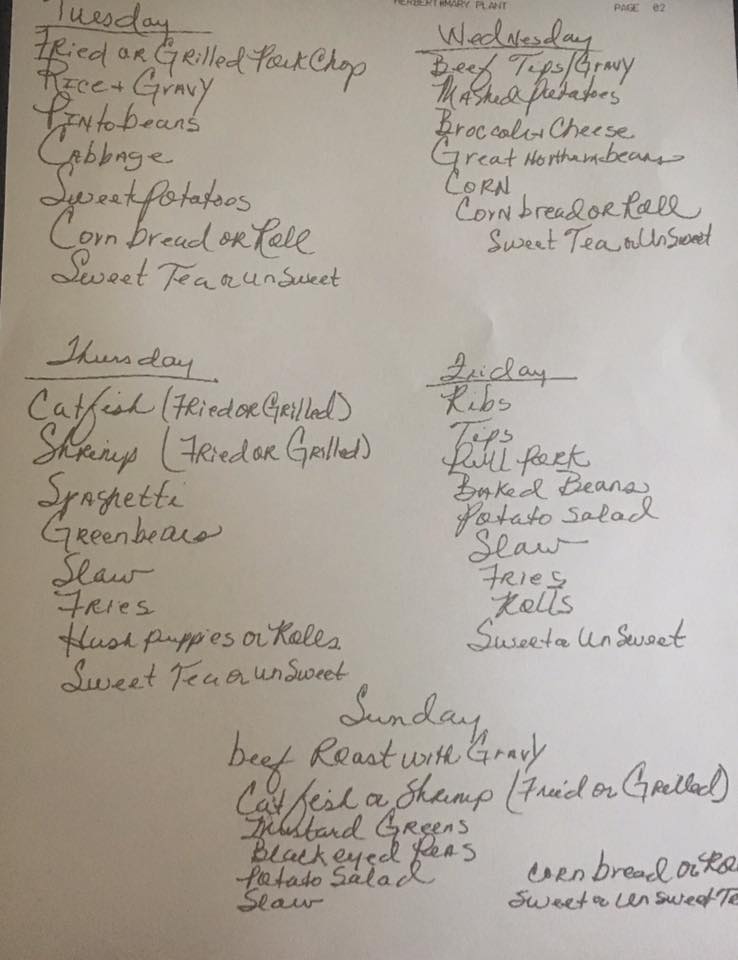 HERBERT&MARY PLANT PAGE 02
Tuesday
Fried or Grilled Pork Chop
Rice + Gravy
Pinto beans
Cabbage
Sweet potatoos
Corn bread or Roll
Sweet Tea or UnSweet
Wednesday
Beef Tips/Gravy
Mashed potatoes
Broccoli + Cheese
Great Northern beans
Corn
Corn bread or Roll
Sweet Tea or UnSweet
Thursday
Catfish (Fried or Grilled)
Shrimp (Fried or Grilled)
Spaghetti
Greenbeans
Slaw
Fries
Hush puppies or Rolls
Sweet Tea or UnSweet
Friday
Ribs
Tips
Pull Pork
Baked Beans
Potato Salad
Slaw
Fries
Rolls
Sweet or UnSweet
Sunday
beef Roast with Gravy
Catfish or Shrimp (Fried or Grilled)
Mustard Greens
Black eyed Peas
Potato Salad
Slaw
Corn bread or Ro
Sweet or UnSweet Te